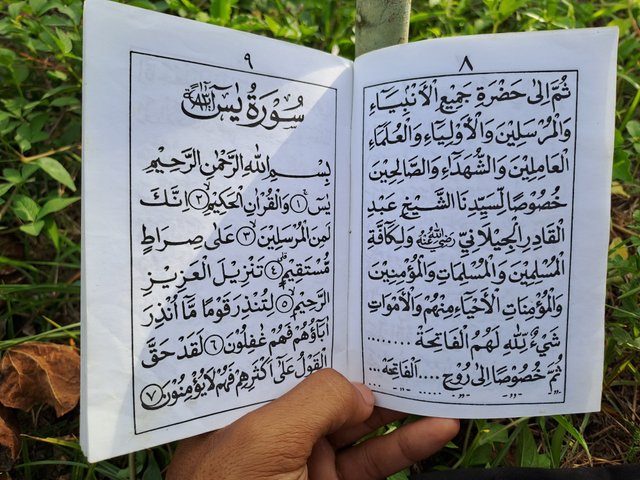 ٨
ثُمَّ اِلَى حَضْرَةِ جَمِيْعِ الْاَنْبِيَاءِ
وَالْمُرْسَلِيْنَ وَالْاَوْلِيَاءِ وَالْعُلَمَاءِ
الْعَامِلِيْنَ وَالشُّهَدَاءِ وَالصَّالِحِيْنَ
خُصُوْصًا لِسَيِّدِنَا الشَّيْخِ عَبْدِ
الْقَادِرِ الْجِيْلَانِيْ رَضِيَ اللّٰهُ عَنْهُ وَلِكَافَّةِ
الْمُسْلِمِيْنَ وَالْمُسْلِمَاتِ وَالْمُؤْمِنِيْنَ
وَالْمُؤْمِنَاتِ الْاَحْيَاءِ مِنْهُمْ وَالْاَمْوَاتِ
شَيْءٌ لِلّٰهِ لَهُمُ الْفَاتِحَةْ .........
ثُمَّ خُصُوْصًا اِلَى رُوْحِ .... اَلْفَاتِحَةْ.
٩
سُوْرَةُ يٰسٓ
بِسْمِ اللّٰهِ الرَّحْمٰنِ الرَّحِيْمِ
يٰسٓ ﴿١﴾ وَالْقُرْاٰنِ الْحَكِيْمِ ﴿٢﴾ اِنَّكَ
لَمِنَ الْمُرْسَلِيْنَ ﴿٣﴾ عَلٰى صِرَاطٍ
مُسْتَقِيْمٍ ﴿٤﴾ تَنْزِيْلَ الْعَزِيْزِ
الرَّحِيْمِ ﴿٥﴾ لِتُنْذِرَ قَوْمًا مَّا اُنْذِرَ
اٰبَاؤُهُمْ فَهُمْ غٰفِلُوْنَ ﴿٦﴾ لَقَدْ حَقَّ
الْقَوْلُ عَلٰٓى اَكْثَرِهِمْ فَهُمْ لَا يُؤْمِنُوْنَ ﴿٧﴾